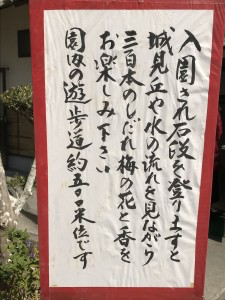 入園され石段を登りますと
城見丘や水の流れを見ながら
三百本のしだれ梅の花と香を
お楽しみ下さい
園内の遊歩道約五〇〇米位です